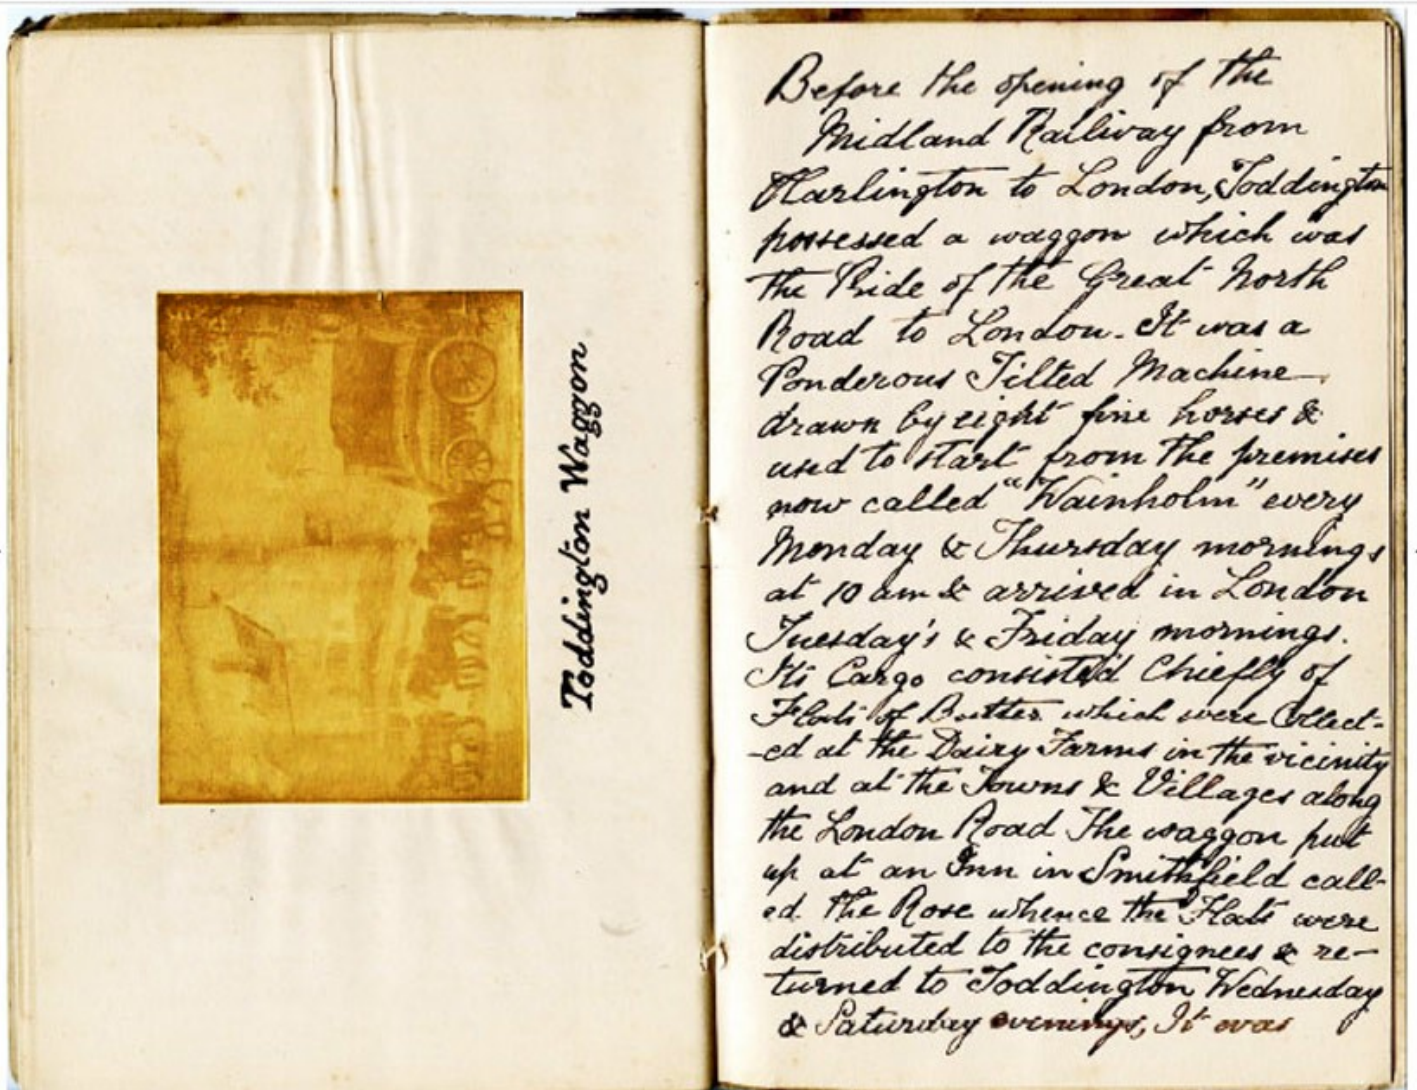 Toddington Waggon
Before the opening of the
Midland Railway from
Harlington to London, Toddington
possessed a waggon which was
the Pride of the Great North
Road to London. It was a
Ponderous Tilted Machine
drawn by eight fine horses &
used to start from the premises
now called "Wainholm" every
Monday & Thursday mornings
at 10 am & arrived in London
Tuesday's & Friday mornings.
Its Cargo consisted Chiefly of
Flats of Butter which were Collect-
-ed at the Dairy Farms in the vicinity
and at the Towns & Villages along
the London Road The waggon put
up at an Inn in Smithfield call-
ed The Rose whence the Flats were
distributed to the consignees & re-
turned to Toddington Wednesday
& Saturday evenings, It was